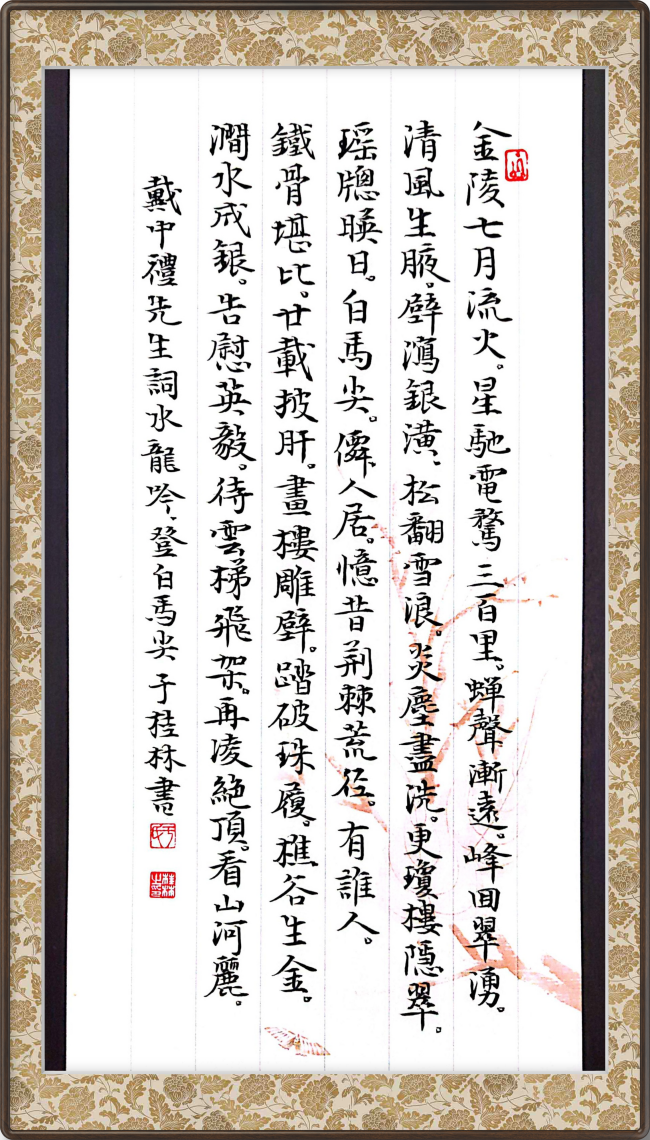 金陵七月流火。星馳電騖三百里。蟬聲漸遠。峰回翠湧。
清風生腋。壁瀉銀潢、松翻雪浪。炎塵盡洗。更瓊樓隱翠。
瑶牕暎日。白馬尖。僊人居。憶昔荊棘荒径。有誰人。
鐵骨堪比。廿載披肝。畫樓雕壁。踏破珠履。樵谷生金。
澗水成銀。告慰英毅。待雲梯飛架。再凌絶頂。看山河麗。
戴中禮先生詞水龍吟、登白馬尖于桂林書